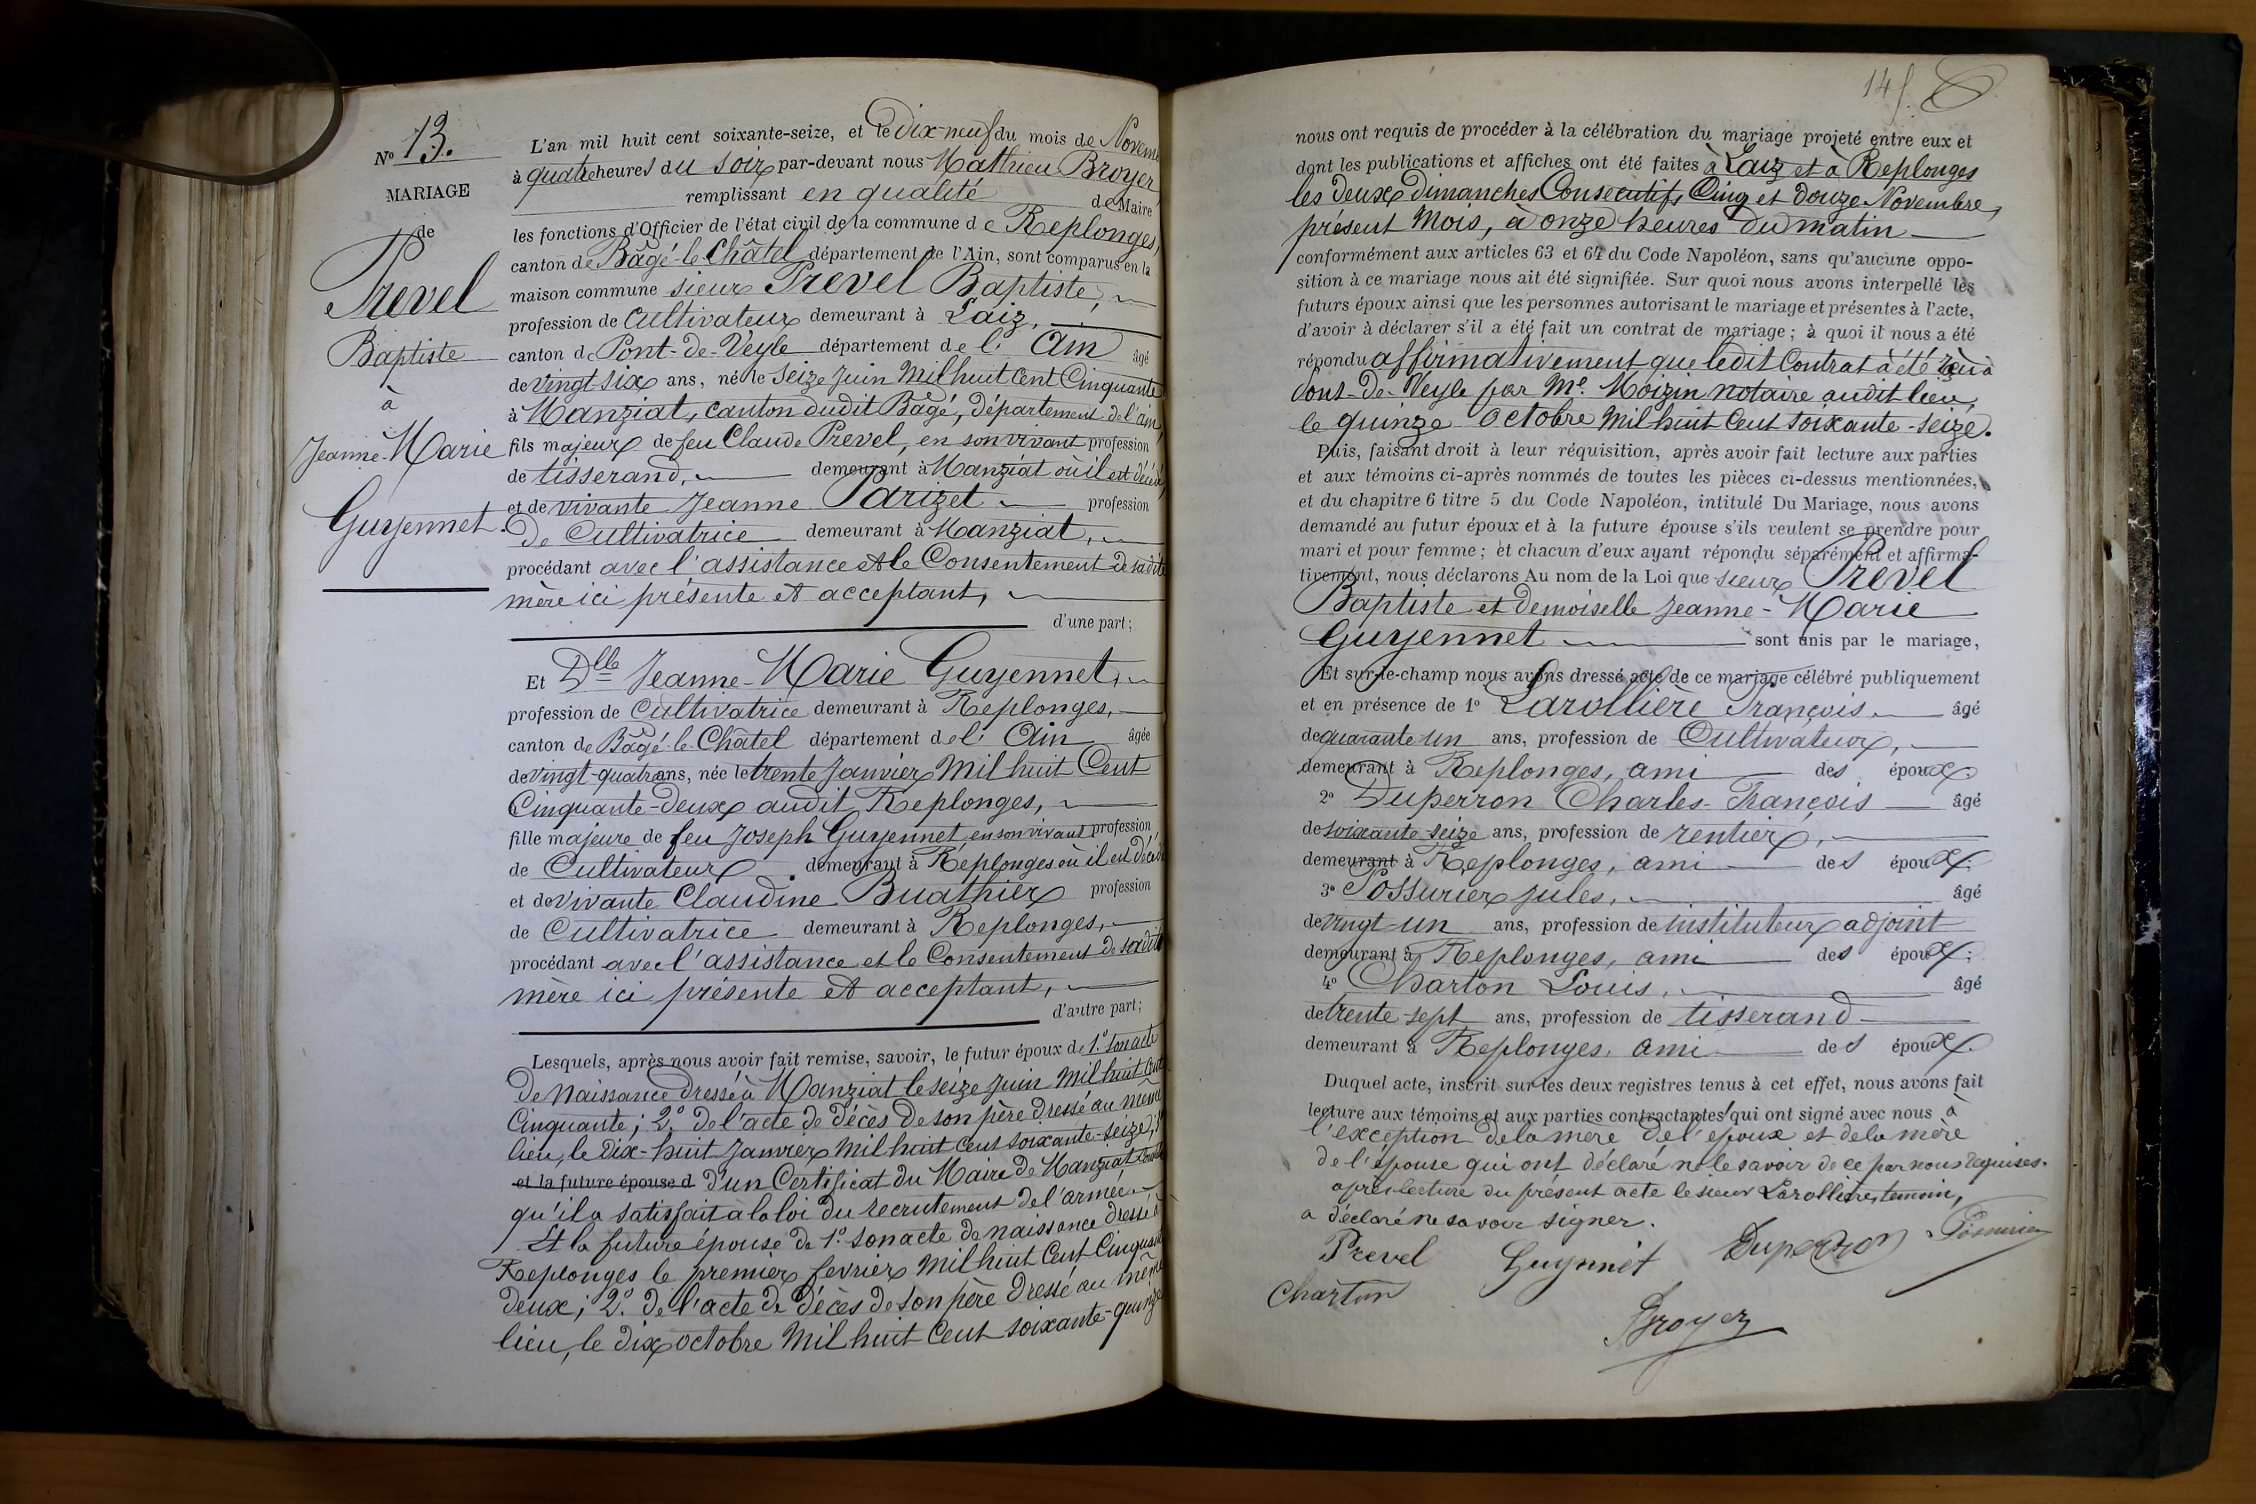 Nº 13.
MARIAGE
de
Prevel
Baptiste
à
Jeanne-Marie
Guyennet.
L'an mil huit cent soixante-seize, et le dix-neuf du mois de Novem
à quatre heures du soir par-devant nous Mathieu Broyer
remplissant en qualité de Maire
les fonctions d'Officier de l'état civil de la commune de Replonges,
canton de Bâgé-le-Châtel département de l'Ain, sont comparus en la
maison commune sieur Prevel Baptiste,
profession de Cultivateur demeurant à Laiz,
canton de Pont-de-Veyle département de l' Ain âgé
de vingt-six ans, né le seize juin Mil huit Cent Cinquante
à Manziat, canton dudit Bâgé, département de l'ain,
fils majeur de feu Claude Prevel, en son vivant profession
de tisserand, demeurant à Manziat où il est décédé,
et de vivante Jeanne Parizet profession
de Cultivatrice demeurant à Manziat,
procédant avec l'assistance et le Consentement de sadite
mère ici présente et acceptant,
d'une part;
Et Dlle Jeanne-Marie Guyennet,
profession de Cultivatrice demeurant à Replonges,
canton de Bâgé-le-Châtel département de l' Ain âgée
de vingt-quatre ans, née le trente Janvier Mil huit Cent
Cinquante-deux audit Replonges,
fille majeure de feu Joseph Guyennet, en son vivant profession
de Cultivateur demeurant à Replonges où il est décédé
et de vivante Claudine Buathier profession
de Cultivatrice demeurant à Replonges,
procédant avec l'assistance et le Consentement de sadite
mère ici présente et acceptant,
d'autre part;
Lesquels, après nous avoir fait remise, savoir, le futur époux de 1.º son acte
de Naissance dressé à Manziat le seize juin Mil huit Cent
Cinquante; 2.º de l'acte de décès de son père dressé au même
lieu, le dix-huit Janvier Mil huit Cent soixante-seize,
et la future épouse d d'un Certificat du Maire de Manziat
qu'il a satisfait à la loi du recrutement de l'armée.
Et la future épouse de 1.º son acte de naissance dressé à
Replonges le premier fevrier Mil huit Cent Cinquante
deux; 2.º de l'acte de décès de son père dressé au même
lieu, le dix octobre Mil huit Cent soixante-quinze
nous ont requis de procéder à la célébration du mariage projeté entre eux et
dont les publications et affiches ont été faites à Laiz et à Replonges
les deux dimanches Consecutifs Cinq et douze Novembre,
présent Mois, à onze heures du matin
conformément aux articles 63 et 64 du Code Napoléon, sans qu'aucune oppo-
sition à ce mariage nous ait été signifiée. Sur quoi nous avons interpellé les
futurs époux ainsi que les personnes autorisant le mariage et présentes à l'acte,
d'avoir à déclarer s'il a été fait un contrat de mariage; à quoi il nous a été
répondu affirmativement que ledit Contrat à été reçu à
Pont-de-Veyle par Me. Moizin notaire audit lieu,
le quinze octobre Mil huit Cent soixante-seize.
Puis, faisant droit à leur réquisition, après avoir fait lecture aux parties
et aux témoins ci-après nommés de toutes les pièces ci-dessus mentionnées,
et du chapitre 6 titre 5 du Code Napoléon, intitulé Du Mariage, nous avons
demandé au futur époux et à la future épouse s'ils veulent se prendre pour
mari et pour femme; et chacun d'eux ayant répondu séparément et affirma-
tivement, nous déclarons Au nom de la Loi que sieur Prevel
Baptiste et demoiselle Jeanne-Marie
Guyennet sont unis par le mariage,
Et sur-le-champ nous avons dressé acte de ce mariage célébré publiquement
et en présence de 1º Larollière François, âgé
de quarante un ans, profession de Cultivateur,
demeurant à Replonges, ami des époux.
2º Duperron Charles-François âgé
de soixante-seize ans, profession de rentier,
demeurant à Replonges, ami des époux.
3º Possurier jules, âgé
de vingt-un ans, profession de instituteur adjoint
demeurant à Replonges, ami des époux;
4º Charton Louis, âgé
de trente-sept ans, profession de tisserand
demeurant à Replonges, ami des époux.
Duquel acte, inscrit sur les deux registres tenus à cet effet, nous avons fait
lecture aux témoins et aux parties contractantes qui ont signé avec nous à
l'exception de la mère de l'époux et de la mère
de l'épouse qui ont déclaré ne le savoir de ce par nous requises.
après lecture du présent acte le sieur Larollière, temoin,
a déclaré ne savoir signer.
Prevel Guynnet Duperron
Charton
Broyer